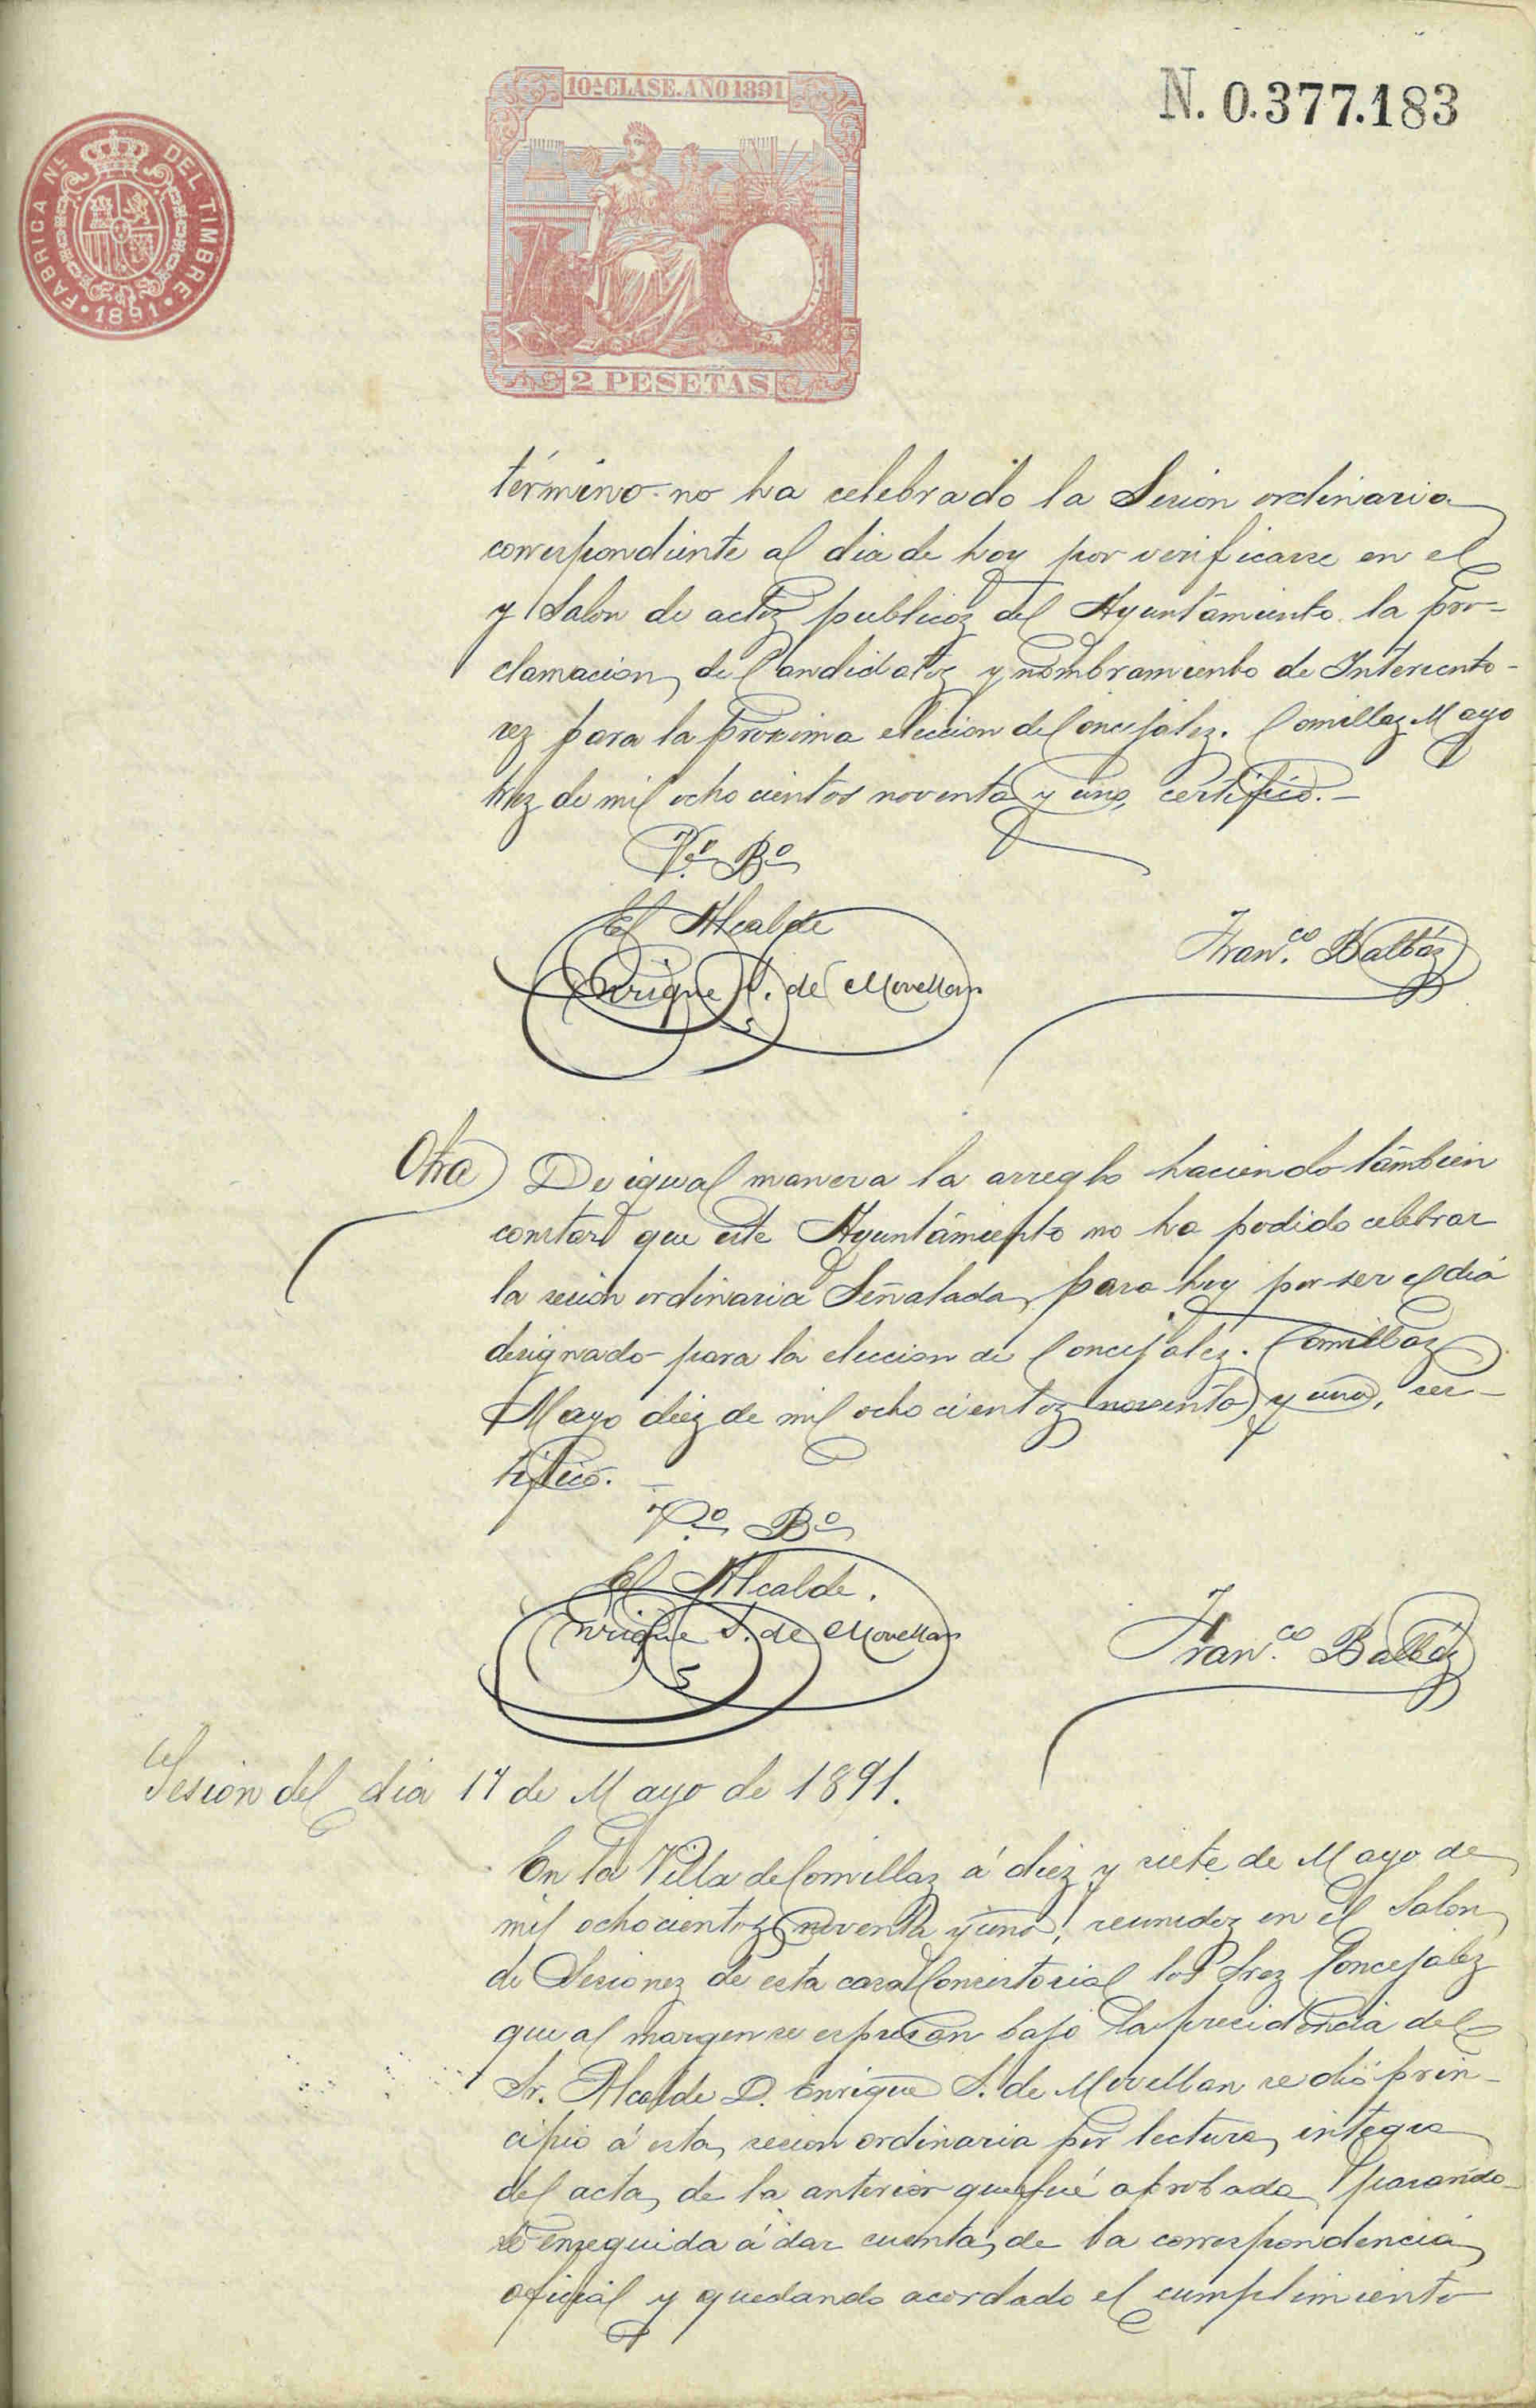 10ª CLASE. AÑO 1891
N. 0.377.183
FABRICA NL. DEL TIMBRE
1891
2 PESETAS
término no ha celebrado la Sesion ordinaria
correspondiente al dia de hoy por verificarse en el
y Salon de actos publicos del Ayuntamiento la pro-
clamacion de Candidatos y nombramiento de Intervento-
res para la proxima eleccion de Concejales. Comillas Mayo
tres de mil ochocientos noventa y uno, certifico.-
Vº. Bº
El Alcalde
Enrique S. de Movellan
Franco. Balbás
Otra De igual manera la arreglo haciendo tambien
constar que este Ayuntamiento no ha podido celebrar
la sesion ordinaria Señalada para hoy por ser el dia
designado para la eleccion de Concejales. Comillas
Mayo diez de mil ochocientos noventa y uno, cer-
tifico. -
Vº. Bº
El Alcalde.
Enrique S. de Movellan
Franco. Balbás
Sesion del dia 17 de Mayo de 1891.
En la Villa de Comillas á diez y siete de Mayo de
mil ochocientos noventa y uno, reunidos en el Salon
de Sesiones de esta casa Consistorial los Sres Concejales
que al margen se espresan bajo la presidencia del
Sr. Alcalde D. Enrique S. de Movellan se dió prin-
cipio á esta sesion ordinaria por lectura integra
del acta de la anterior que fué aprobada, pasando-
se enseguida á dar cuenta de la correspondencia
oficial y quedando acordado el cumplimiento